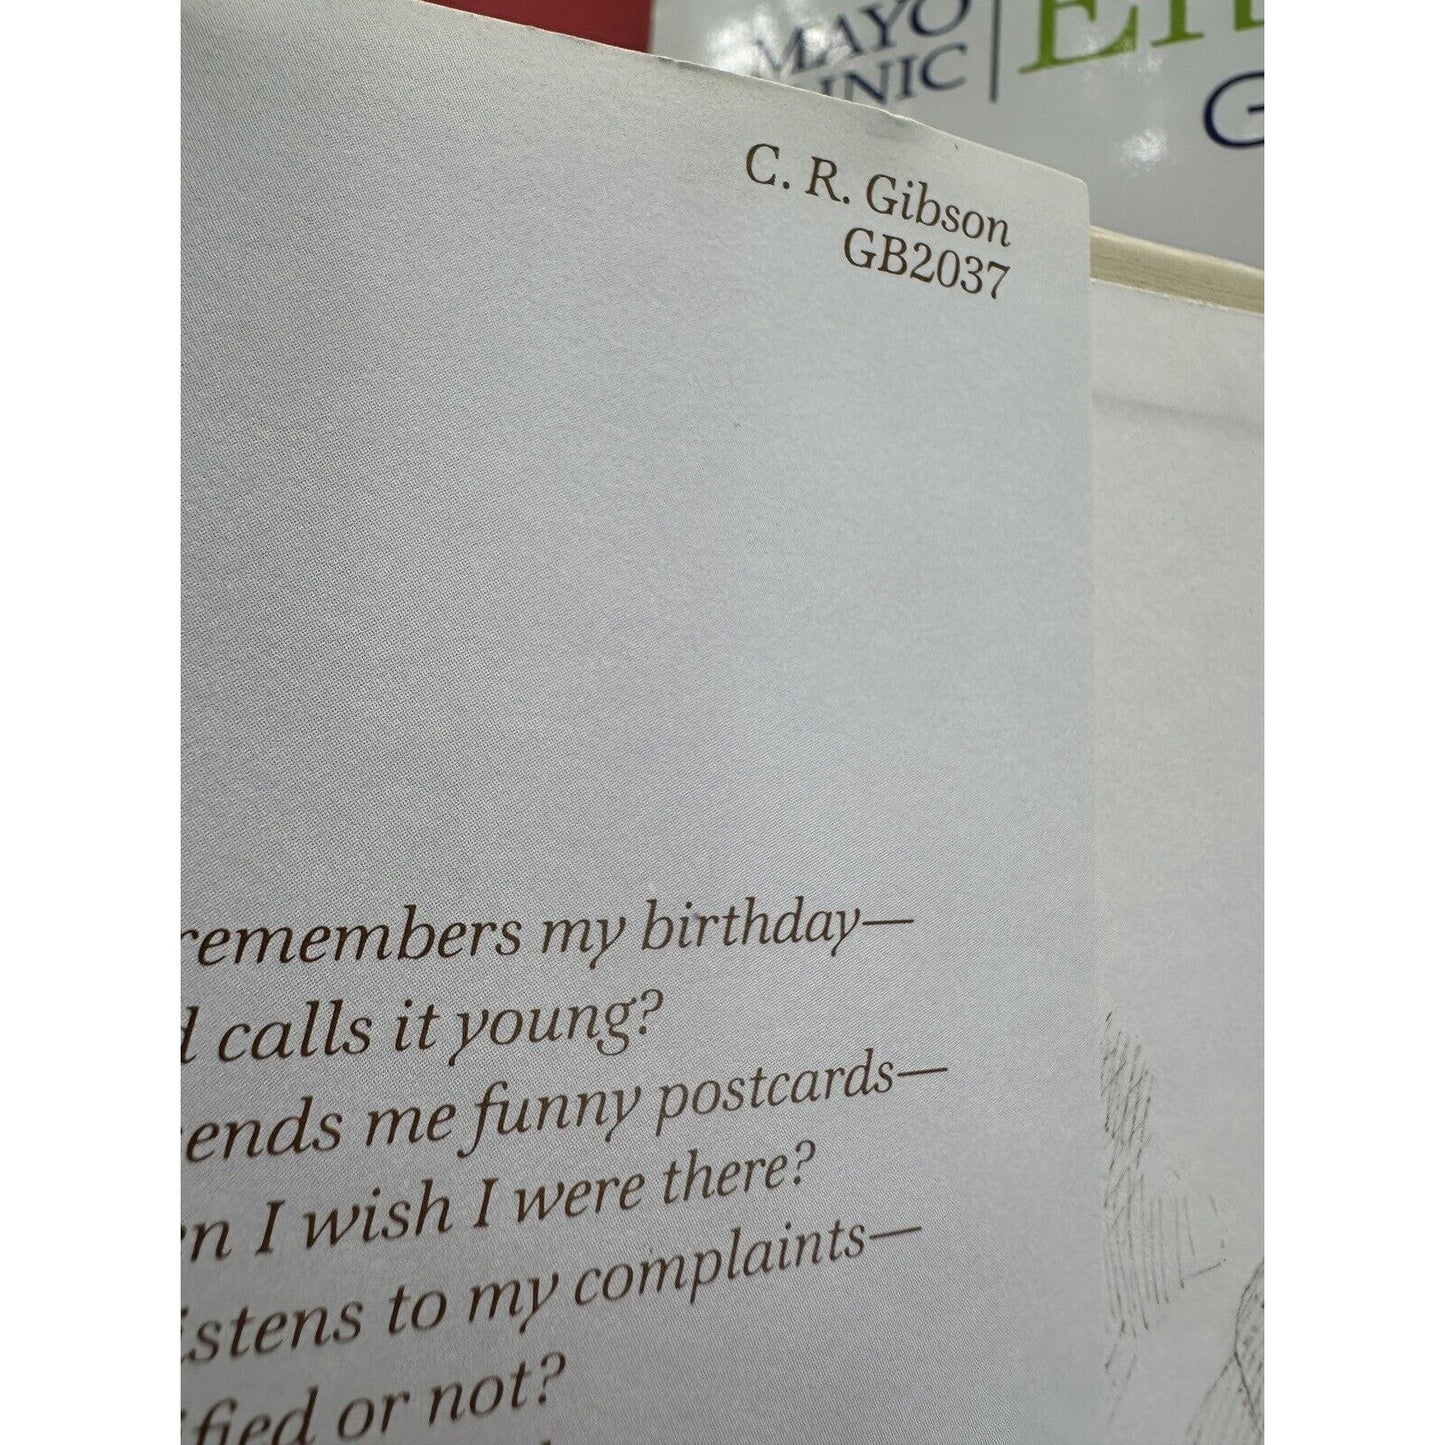 MAYO
CLINIC
C. R. Gibson
GB2037
remembers my birthday—
calls it young?
me funny postcards—
I wish I were there?
to my complaints—
or not?